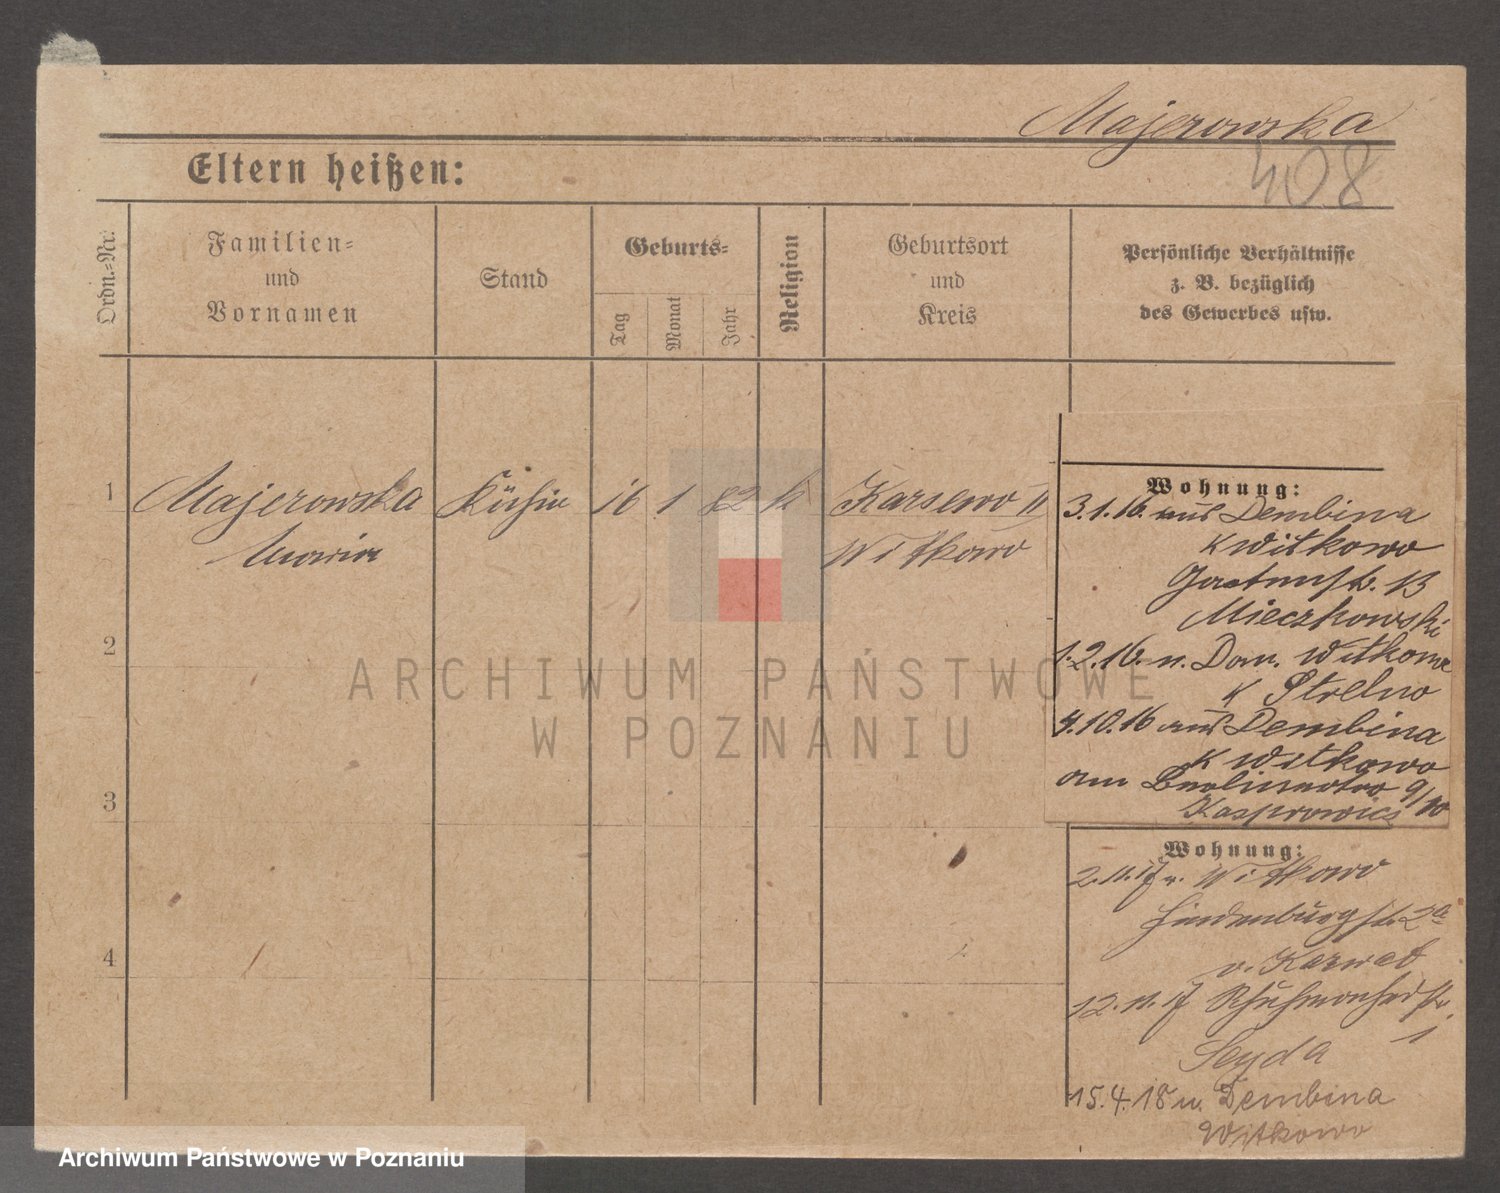 Majerowska
408
Eltern heißen:
Ordn.=Nr.
Familien=
und
Vornamen
Stand
Geburts=
Tag
Monat
Jahr
Religion
Geburtsort
und
Kreis
Persönliche Verhältnisse
z. B. bezüglich
des Gewerbes usw.
1
Majerowska Köchin 16 1 82 k Karsewo
Maria Witkowo
2
3
4
Wohnung:
3.1.16. aus Dembina
K Witkowo
Gartenstr. 13
Mieczkowski
1.2.16. n. Dom. Witkowo
K Strelno
4.10.16 aus Dembina
K Witkowo
am Berlinerstr. 9/10
Kasprowicz
Wohnung:
2.11.17 v. Witkowo
Hindenburgstr. 2a
v. Karwat
12.11.17
1
Seyda
15.4.18 n. Dembina
Witkowo
ARCHIWUM PAŃSTWOWE
W POZNANIU
Archiwum Państwowe w Poznaniu